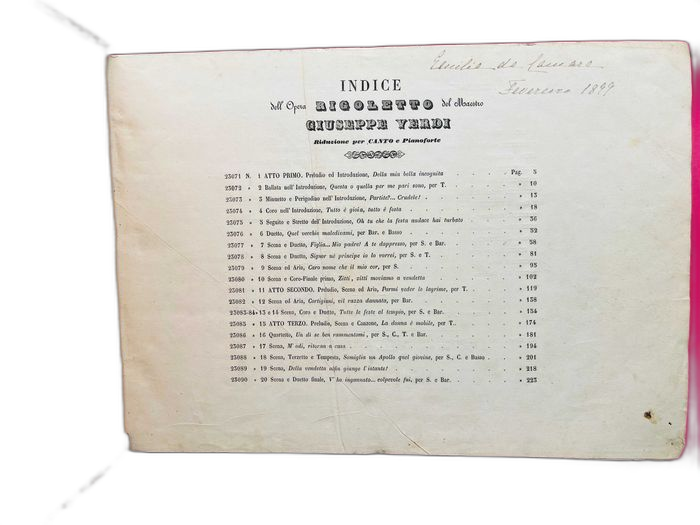 Emilia de Camara
Fevereiro 1899
INDICE
dell' Opera RIGOLETTO del Maestro
GIUSEPPE VERDI
Riduzione per CANTO e Pianoforte
23071 N. 1 ATTO PRIMO. Preludio ed Introduzione, Della mia bella incognita Pag. 5
23072 » 2 Ballata nell' Introduzione, Questa o quella per me pari sono, per T. » 10
23073 » 3 Minuetto e Perigodino nell' Introduzione, Partite?... Crudele! » 13
23074 » 4 Coro nell' Introduzione, Tutto è gioia, tutto è festa » 18
23075 » 5 Seguito e Stretta dell' Introduzione, Oh tu che la festa audace hai turbato » 36
23076 » 6 Duetto, Quel vecchio maledivami, per Bar. e Basso » 52
23077 » 7 Scena e Duetto, Figlia... Mio padre! A te dappresso, per S. e Bar. » 58
23078 » 8 Scena e Duetto, Signor nè principe io lo vorrei, per S. e T. » 81
23079 » 9 Scena ed Aria, Caro nome che il mio cor, per S. » 95
23080 » 10 Scena e Coro-Finale primo, Zitti, zitti moviamo a vendetta » 102
23081 » 11 ATTO SECONDO. Preludio, Scena ed Aria, Parmi veder le lagrime, per T. » 119
23082 » 12 Scena ed Aria, Cortigiani, vil razza dannata, per Bar. » 138
23083-84 » 13 e 14 Scena, Coro e Duetto, Tutte le feste al tempio, per S. e Bar. » 154
23085 » 15 ATTO TERZO. Preludio, Scena e Canzone, La donna è mobile, per T. » 174
23086 » 16 Quartetto, Un dì se ben rammentomi, per S., C., T. e Bar. » 181
23087 » 17 Scena, M' odi, ritorna a casa » 194
23088 » 18 Scena, Terzetto e Tempesta, Somiglia un Apollo quel giovine, per S., C. e Basso » 201
23089 » 19 Scena, Della vendetta alfin giunge l' istante! » 218
23090 » 20 Scena e Duetto finale, V' ho ingannato... colpevole fui, per S. e Bar. » 223